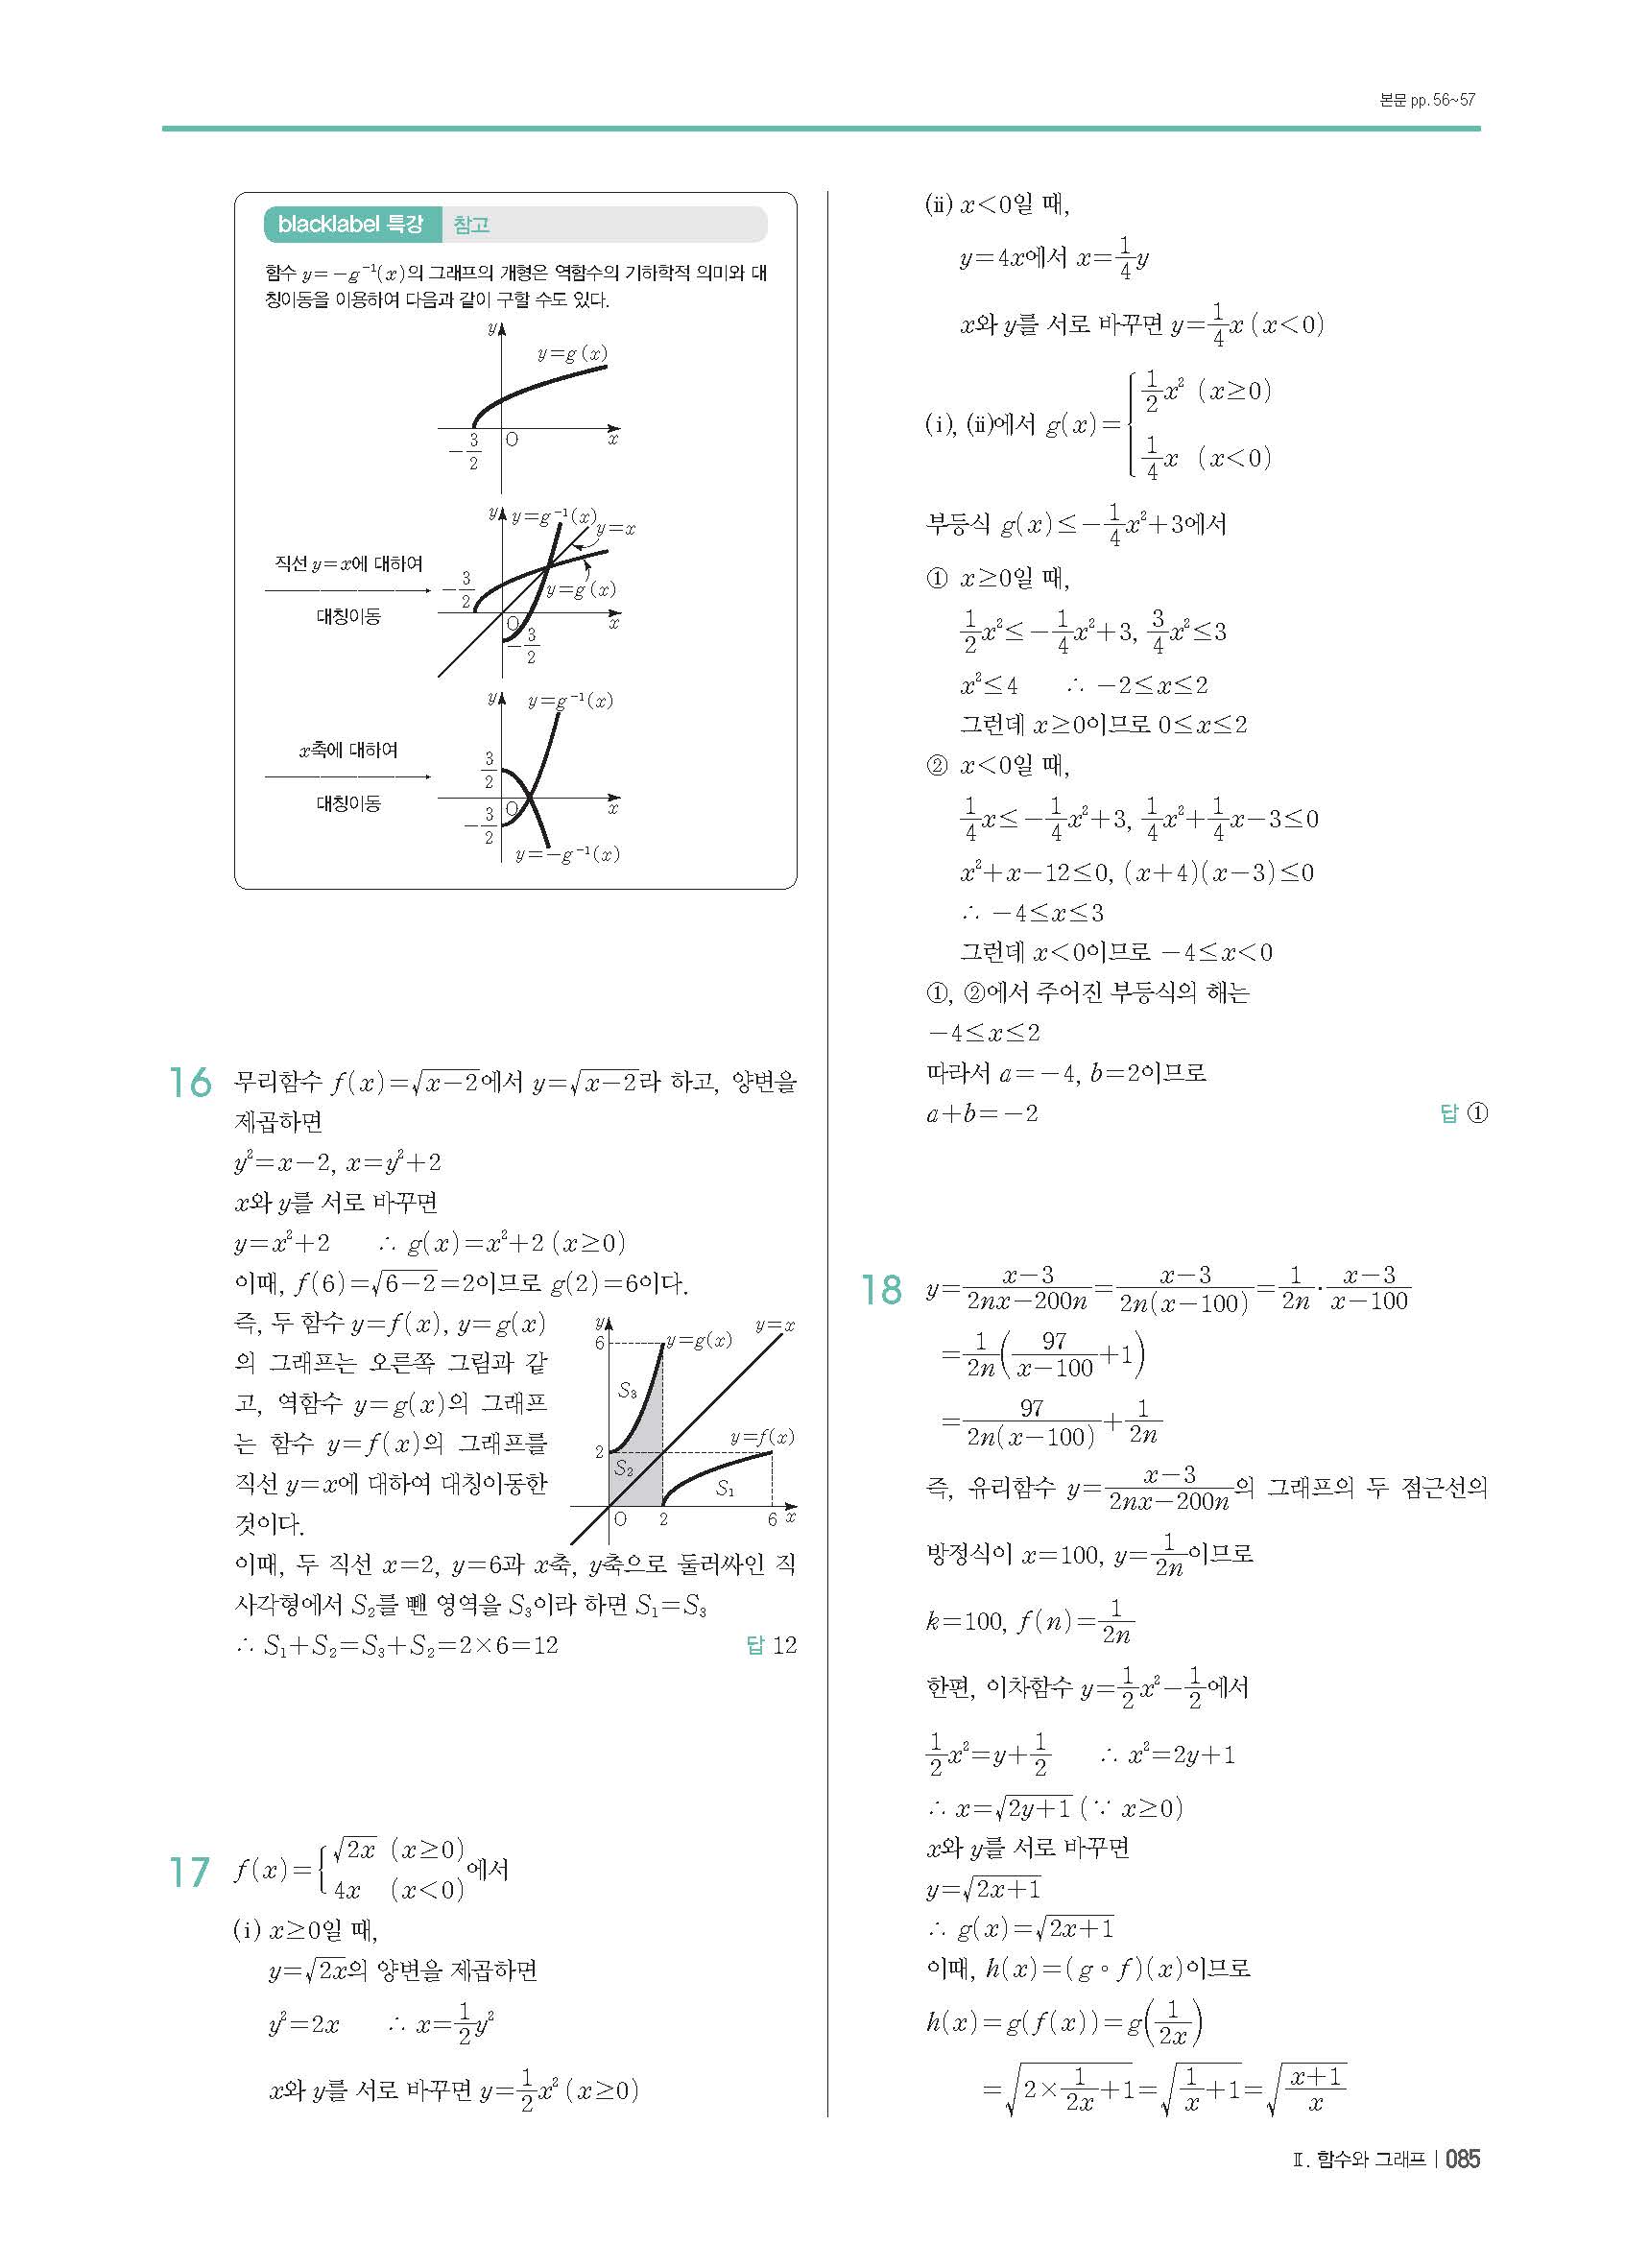 본문 pp. 56~57
blacklabel 특강 참고
함수 y=-g⁻¹(x)의 그래프의 개형은 역함수의 기하학적 의미와 대
칭이동을 이용하여 다음과 같이 구할 수도 있다.
y
y=g(x)
-3/2
O
x
y
y=g⁻¹(x)
y=x
직선 y=x에 대하여
대칭이동
-3/2
y=g(x)
O
x
-3/2
y
y=g⁻¹(x)
x축에 대하여
대칭이동
3/2
O
x
-3/2
y=-g⁻¹(x)
16 무리함수 f(x)=√(x-2)에서 y=√(x-2)라 하고, 양변을
제곱하면
y²=x-2, x=y²+2
x와 y를 서로 바꾸면
y=x²+2 ∴ g(x)=x²+2 (x≥0)
이때, f(6)=√(6-2)=2이므로 g(2)=6이다.
즉, 두 함수 y=f(x), y=g(x)
의 그래프는 오른쪽 그림과 같
고, 역함수 y=g(x)의 그래프
는 함수 y=f(x)의 그래프를
직선 y=x에 대하여 대칭이동한
것이다.
y
6
y=g(x)
y=x
S₃
y=f(x)
2
S₂
S₁
O
2
6
x
이때, 두 직선 x=2, y=6과 x축, y축으로 둘러싸인 직
사각형에서 S₂를 뺀 영역을 S₃이라 하면 S₁=S₃
∴ S₁+S₂=S₃+S₂=2×6=12 답 12
17 f(x)={√(2x) (x≥0)
4x (x<0) 에서
(ⅰ) x≥0일 때,
y=√(2x)의 양변을 제곱하면
y²=2x ∴ x=1/2y²
x와 y를 서로 바꾸면 y=1/2x² (x≥0)
(ⅱ) x<0일 때,
y=4x에서 x=1/4y
x와 y를 서로 바꾸면 y=1/4x (x<0)
(ⅰ), (ⅱ)에서 g(x)={1/2x² (x≥0)
1/4x (x<0)
부등식 g(x)≤-1/4x²+3에서
① x≥0일 때,
1/2x²≤-1/4x²+3, 3/4x²≤3
x²≤4 ∴ -2≤x≤2
그런데 x≥0이므로 0≤x≤2
② x<0일 때,
1/4x≤-1/4x²+3, 1/4x²+1/4x-3≤0
x²+x-12≤0, (x+4)(x-3)≤0
∴ -4≤x≤3
그런데 x<0이므로 -4≤x<0
①, ②에서 주어진 부등식의 해는
-4≤x≤2
따라서 a=-4, b=2이므로
a+b=-2 답 ①
18 y=(x-3)/(2nx-200n)=(x-3)/(2n(x-100))=1/(2n)·(x-3)/(x-100)
=1/(2n)(97/(x-100)+1)
=97/(2n(x-100))+1/(2n)
즉, 유리함수 y=(x-3)/(2nx-200n)의 그래프의 두 점근선의
방정식이 x=100, y=1/(2n)이므로
k=100, f(n)=1/(2n)
한편, 이차함수 y=1/2x²-1/2에서
1/2x²=y+1/2 ∴ x²=2y+1
∴ x=√(2y+1) (∵ x≥0)
x와 y를 서로 바꾸면
y=√(2x+1)
∴ g(x)=√(2x+1)
이때, h(x)=(g∘f)(x)이므로
h(x)=g(f(x))=g(1/(2x))
=√(2×1/(2x)+1)=√(1/x+1)=√((x+1)/x)
Ⅱ. 함수와 그래프 | 085